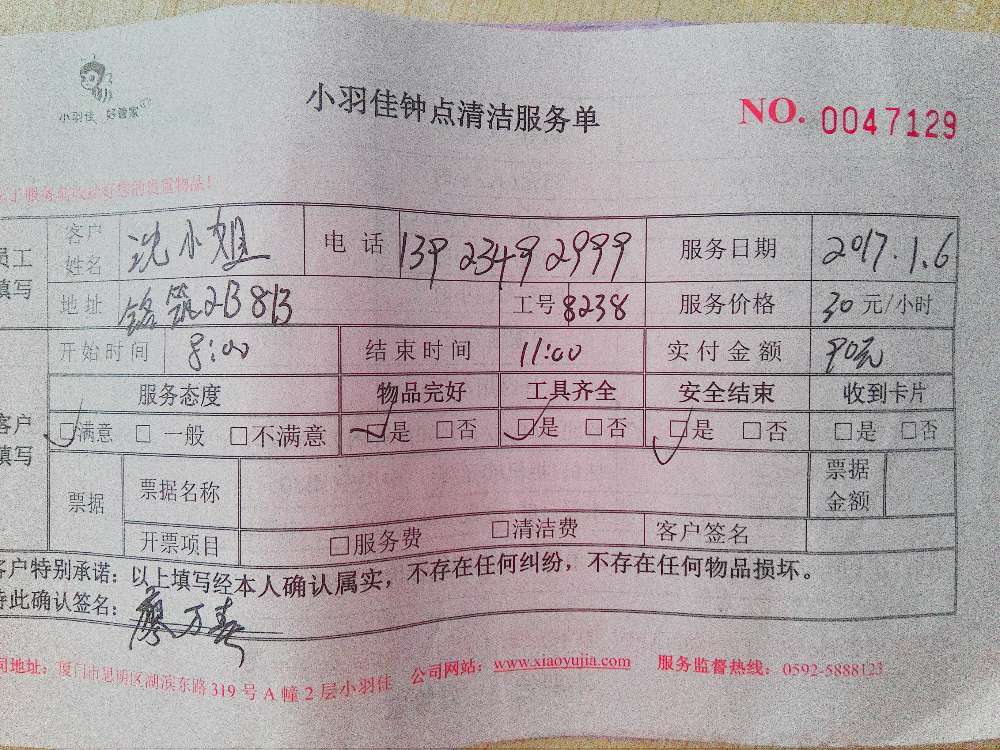 小羽佳 好管家
小羽佳钟点清洁服务单
NO. 0047129
员工填写
客户姓名 沈小姐 电话 139 2349 2999 服务日期 2017.1.6
地址 铭筑2B8B 工号 8238 服务价格 30 元/小时
开始时间 8:00 结束时间 11:00 实付金额 90元
客户填写
服务态度 物品完好 工具齐全 安全结束 收到卡片
□满意 □ 一般 □不满意 □是 □否 □是 □否 □是 □否 □是 □否
票据 票据名称 票据金额
开票项目 □服务费 □清洁费 客户签名
客户特别承诺：以上填写经本人确认属实，不存在任何纠纷，不存在任何物品损坏。
特此确认签名：廖万春
司地址：厦门市思明区湖滨东路 319 号 A 幢 2 层小羽佳 公司网站：www.xiaoyujia.com 服务监督热线：0592-5888123